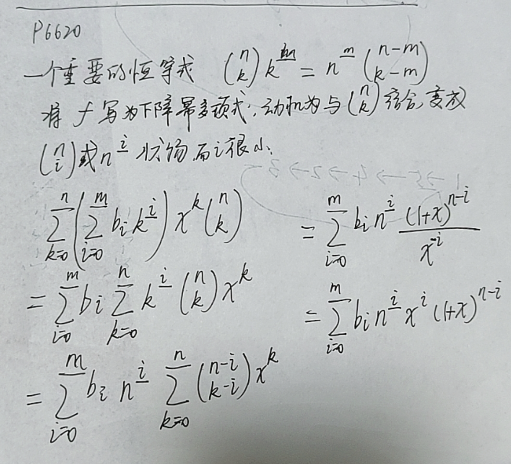 P6620
一个重要的恒等式 \binom{n}{k} k^{\underline{m}} = n^{\underline{m}} \binom{n-m}{k-m}
将 f 写为下降幂多项式,动机为与 \binom{n}{k} 结合,变成
\binom{n}{i} 或 n^{\underline{i}} 状物而 i 很小.
\sum_{k=0}^{n} \left( \sum_{i=0}^{m} b_i k^{\underline{i}} \right) x^k \binom{n}{k}
= \sum_{i=0}^{m} b_i \sum_{k=0}^{n} k^{\underline{i}} \binom{n}{k} x^k
= \sum_{i=0}^{m} b_i n^{\underline{i}} \sum_{k=0}^{n} \binom{n-i}{k-i} x^k
= \sum_{i=0}^{m} b_i n^{\underline{i}} \frac{(1+x)^{n-i}}{x^{-i}}
= \sum_{i=0}^{m} b_i n^{\underline{i}} x^i (1+x)^{n-i}